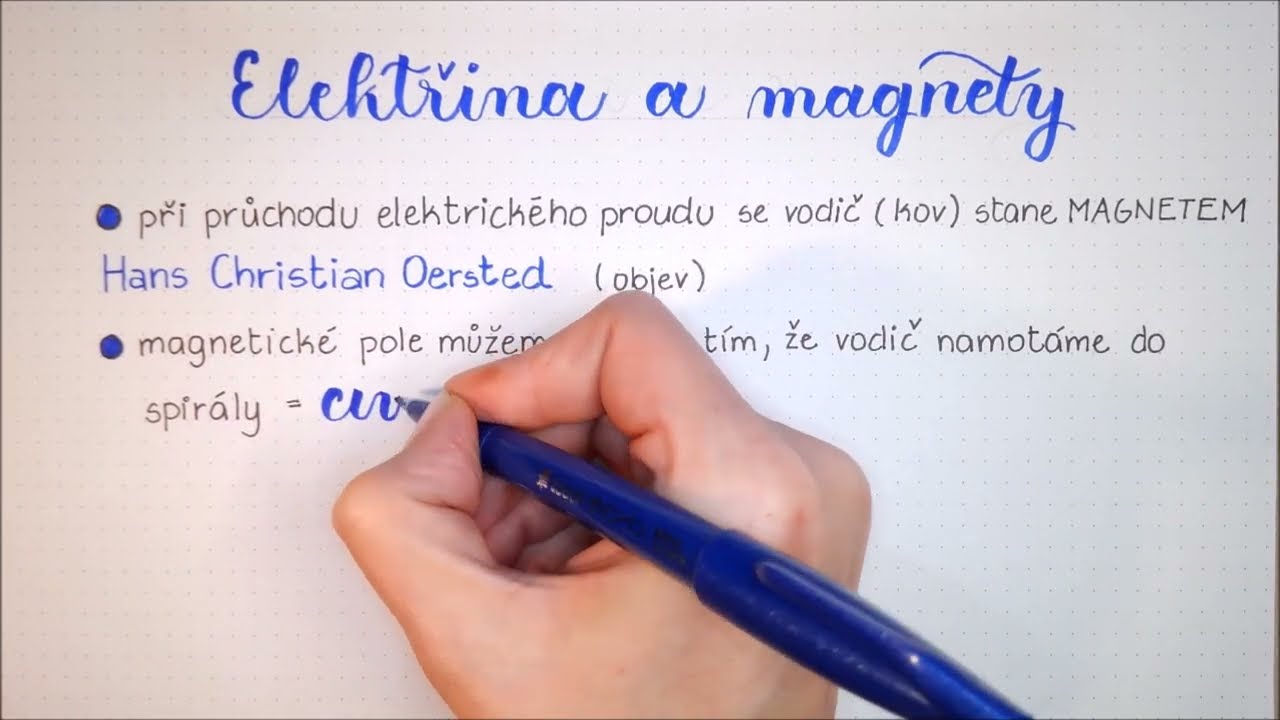 Elektřina a magnety
při průchodu elektrického proudu se vodič (kov) stane MAGNETEM
Hans Christian Oersted (objev)
magnetické pole můžem tím, že vodič namotáme do
spirály = civ